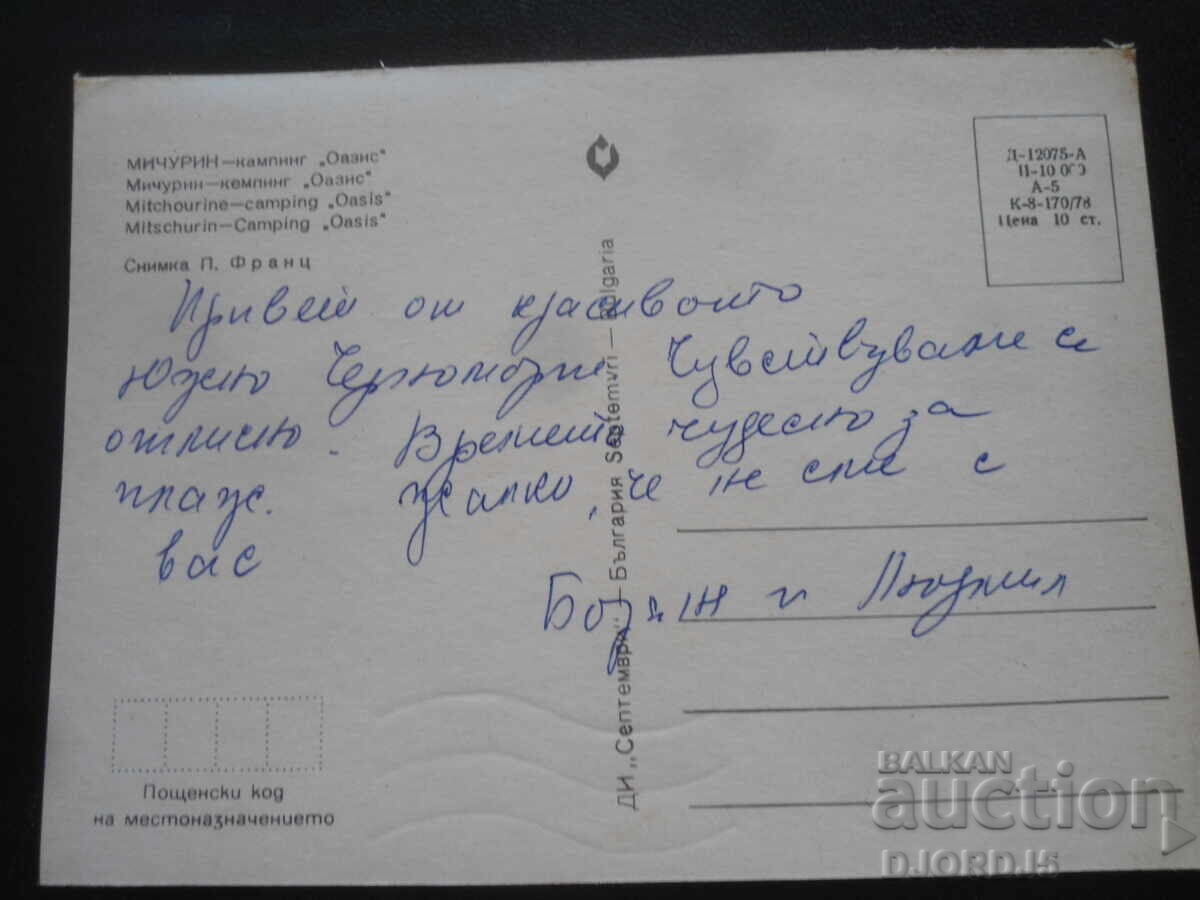 МИЧУРИН—кампинг „Оазис"
Мичурин—кемпинг „Оазис"
Mitchourine—camping „Oasis"
Mitschurin—Camping „Oasis"
Снимка П. Франц
Д-12075-А
П-10 000
А-5
К-8-170/78
Цена 10 ст.
Привет от красивото
Южно Черноморие Чувствуваме се
отлично. Времето чудесно за
плаж. Жалко, че не сте с
вас
и Людмил
ДИ „Септември" — България Septemvri — Bulgaria
Пощенски код
на местоназначението
BALKAN
auction
DJORD.15